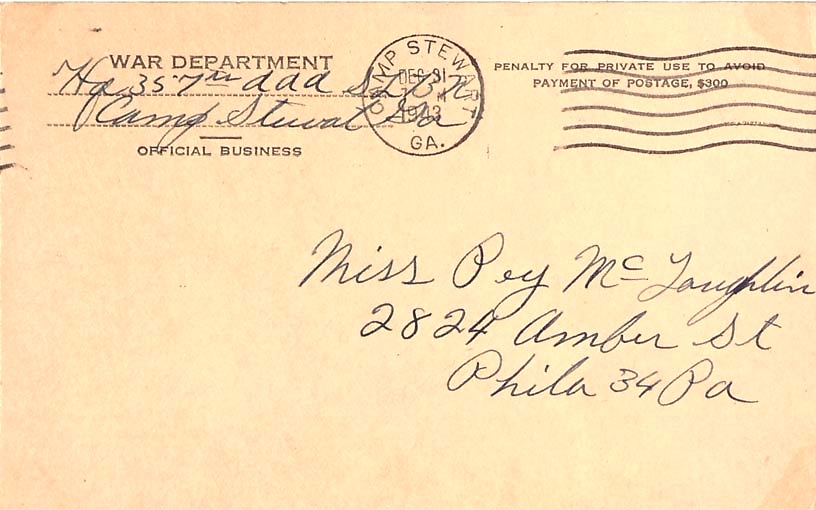 WAR DEPARTMENT
Hq 357th aaa SLBN
Camp Stewat Ga
OFFICIAL BUSINESS
CAMP STEWART
DEC 31
M
1943
GA.
PENALTY FOR PRIVATE USE TO AVOID
PAYMENT OF POSTAGE, $300
Miss Peg McLaughlin
2824 Amber St
Phila 34 Pa